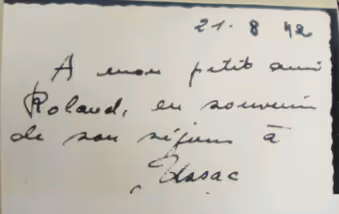 21.8 42
A mon petit ami
Roland, en souvenir
de son séjour à
Ussac